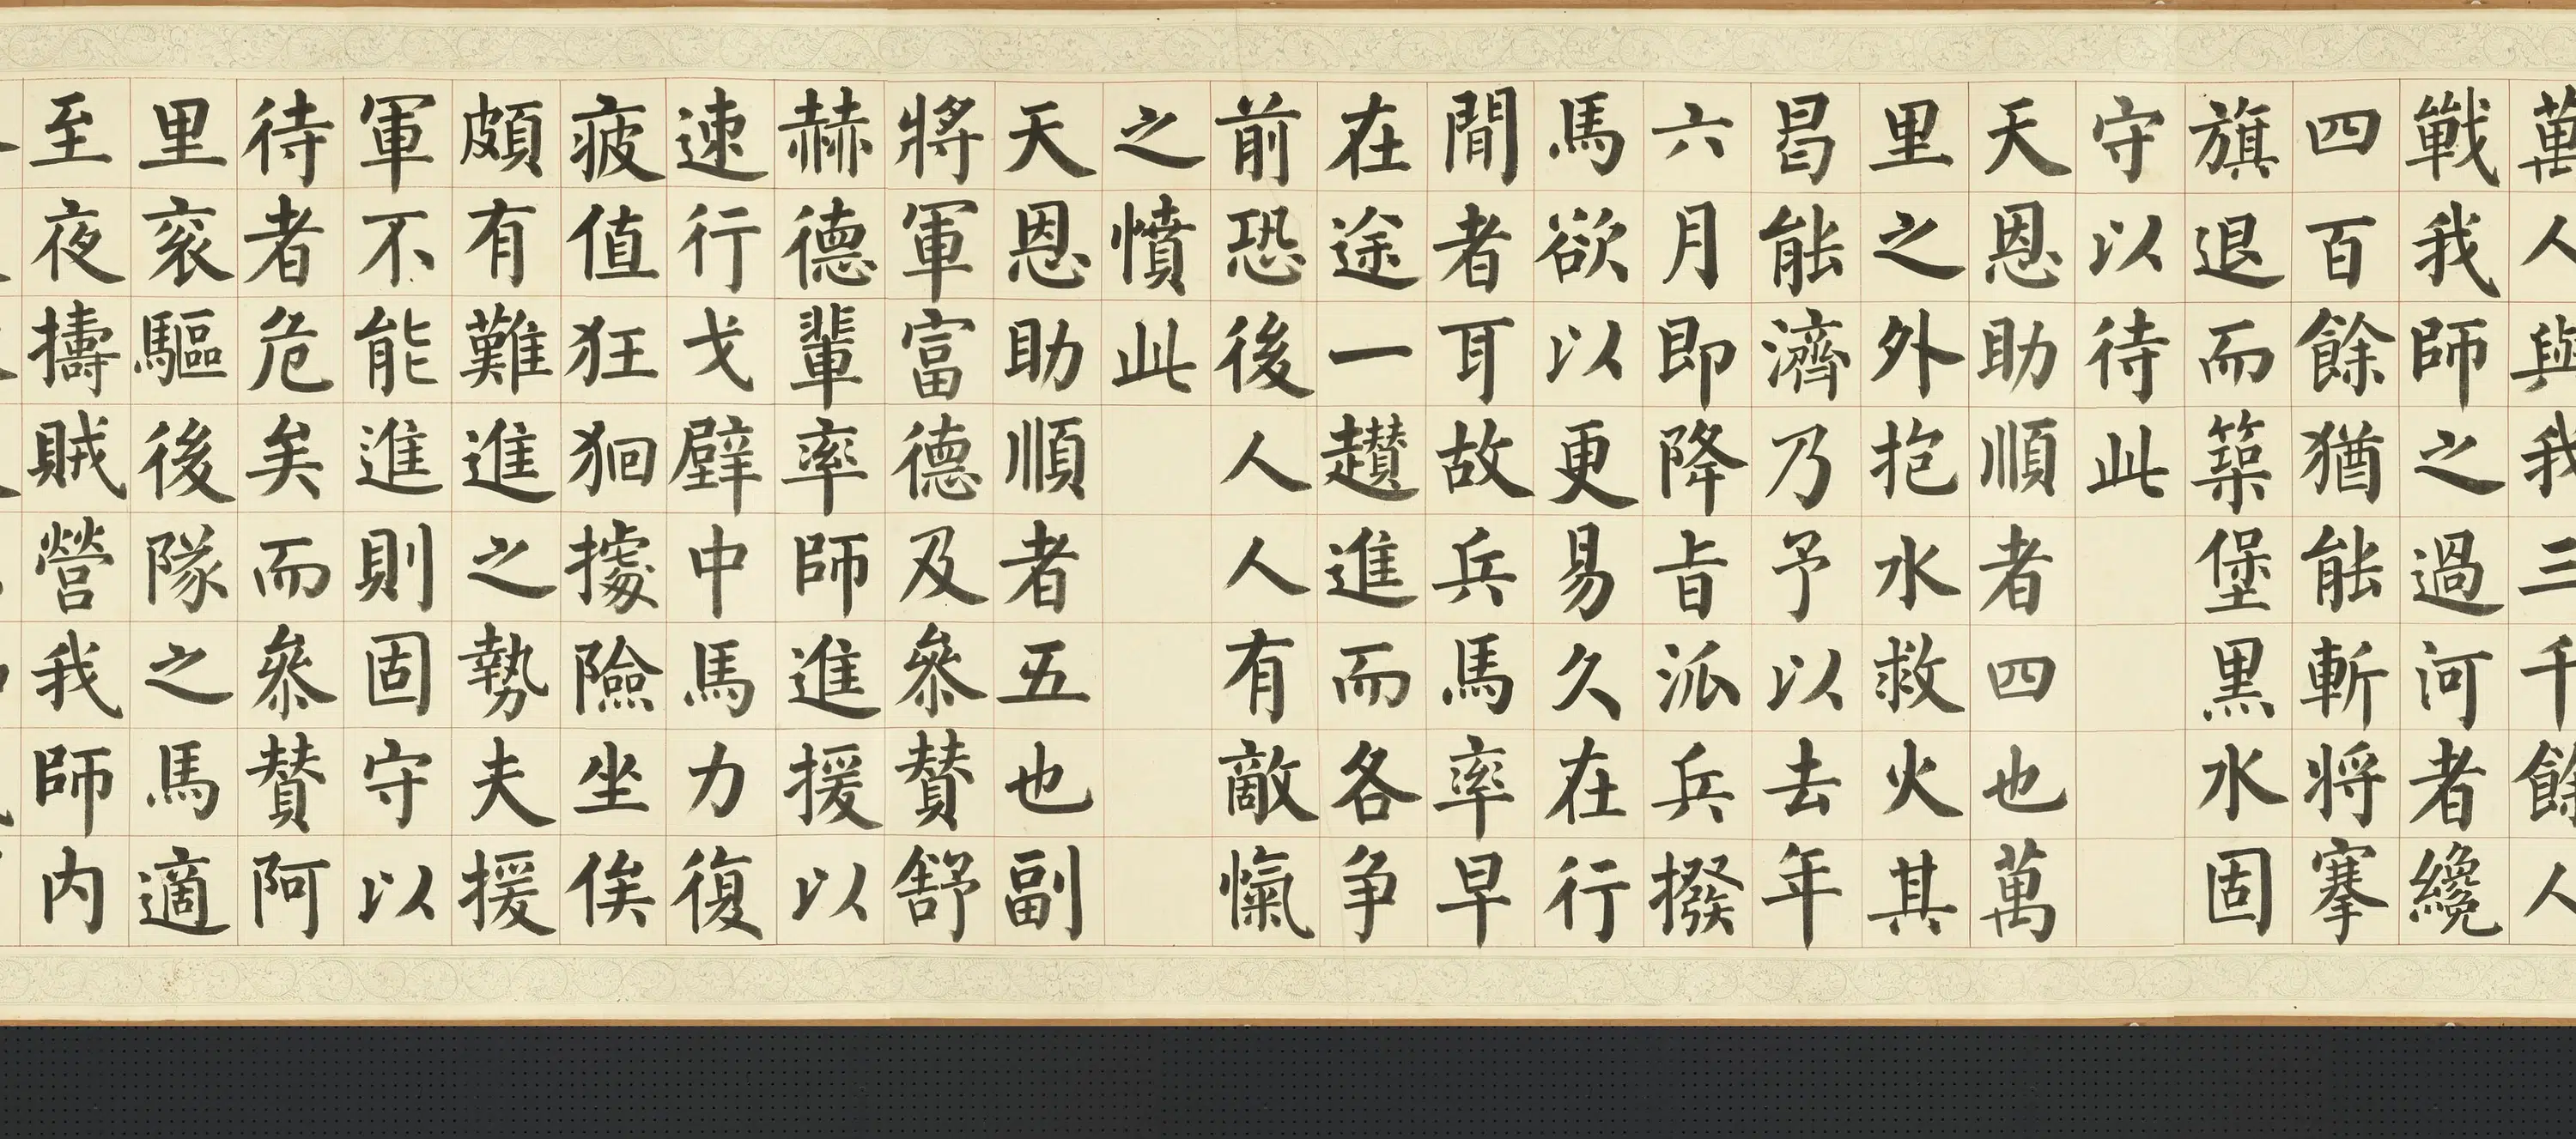 萬人與我三千餘人
戰我師之過河者纔
四百餘猶能斬將搴
旗退而築堡黑水固
守以待此
天恩助順者四也萬
里之外抱水救火其
曷能濟乃予以去年
六月即降旨派兵撥
馬欲以更易久在行
間者耳故兵馬率早
在途一趲進而各争
前恐後人人有敵愾
之憤此
天恩助順者五也副
將軍富德及參贊舒
赫德輩率師進援以
速行戈壁中馬力復
疲值狂狪據險坐俟
頗有難進之勢夫援
軍不能進則固守以
待者危矣而參贊阿
里衮驅後隊之馬適
至夜擣賊營我師内